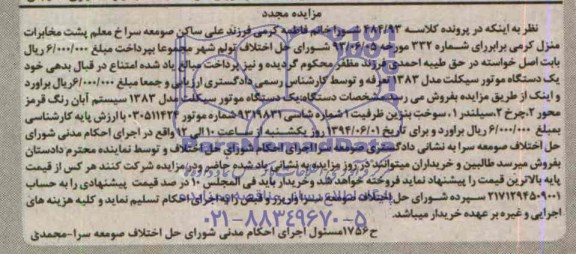 مزایده مجدد
نظر به اینکه در پرونده کلاسه ۴۰۴/۹۳ شورا خانم فاطمه کرمی فرزند علی ساکن صومعه سرا خ معلم پشت مخابرات
منزل کرمی برابر رای شماره ۳۳۲ مورخه ۹۳/۰۶/۰۵ شورای حل اختلاف تولم شهر مجموعا بپرداخت مبلغ ۶/۰۰۰/۰۰۰ ریال
بابت اصل خواسته در حق طیبه احمدی فرزند مظفر محکوم گردیده و نیز پرداخت مبالغ یاد شده امتناع در قبال بدهی خود
یک دستگاه موتور سیکلت مدل ۱۳۸۳ تعرفه و توسط کارشناس رسمی دادگستری ارزیابی و جمعا مبلغ ۶/۰۰۰/۰۰۰ ریال براورد
و اینک از طریق مزایده بفروش می رسد. مشخصات دستگاه: یک دستگاه موتور سیکلت مدل ۱۳۸۳ سیستم آبان رنگ قرمز
محور ۲، چرخ ۲، سیلندر ۱، سوخت بنزین ظرفیت ۱ شماره شاسی ۹۳۱۹۸۳۱ شماره موتور ۰۳۰۵۱۱۴۲۴ با ارزش پایه کارشناسی
بمبلغ ۶/۰۰۰/۰۰۰ ریال براورد و برای تاریخ ۱۳۹۴/۰۶/۰۱ روز یکشنبه از ساعت ۱۰ الی ۱۲ واقع در اجرای احکام مدنی شورای
حل اختلاف صومعه سرا به نشانی دادگستری صومعه سرا اجرای احکام شورای حل اختلاف و توسط نماینده محترم دادستان
بفروش میرسد طالبین و خریداران میتوانند در روز مزایده به نشانی یاد شده حاضر و در مزایده شرکت کنند هر کس از قیمت
پایه بالاترین قیمت را پیشنهاد نماید فروخته خواهد شد و خریدار باید فی المجلس ۱۰ در صد قیمت پیشنهادی را به حساب
۲۱۷۱۲۹۴۵۰۹۰۰۱ سپرده شورای حل اختلاف صومعه سرا واریز و قبض را به اجرای احکام تسلیم نماید و کلیه هزینه های
اجرایی و غیره بر عهده خریدار میباشد.
۰۲۱-۸۸۳۴۹۶۷۰-۵
ح۱۷۵۶ مسئول اجرای احکام مدنی شورای حل اختلاف صومعه سرا-محمدی